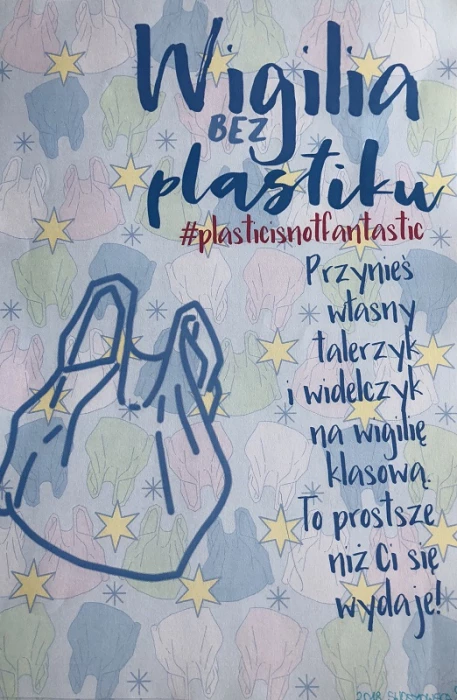 Wigilia
BEZ
plastiku
#plasticisnotfantastic
Przynieś
własny
talerzyk
i widelczyk
na wigilię
klasową.
To prostsze
niż Ci się
wydaje!
2018